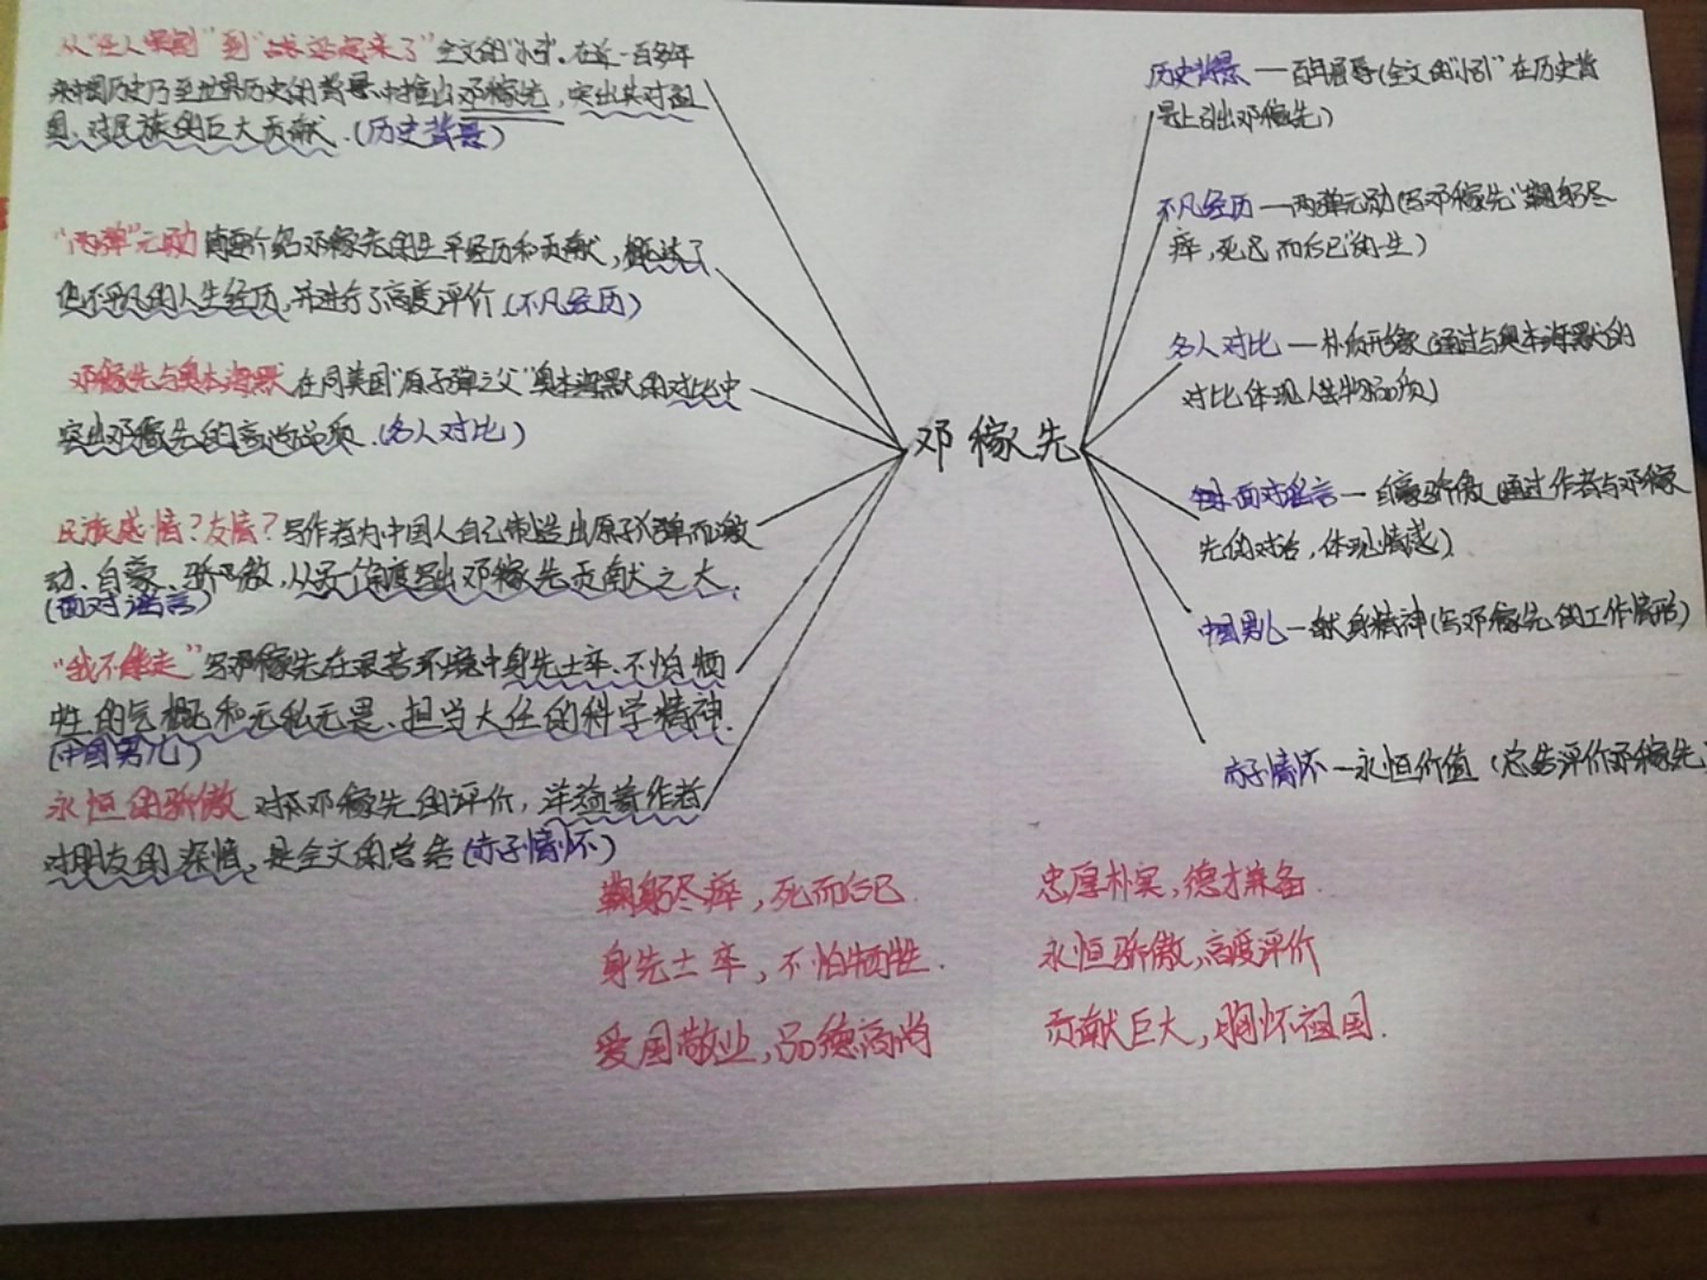 从“任人宰割”到“站起来了”全文的“小引”。在近一百多年
来中国历史乃至世界历史的背景中推出邓稼先,突出其对祖
国、对民族的巨大贡献.(历史背景)
“两弹”元勋 简要介绍邓稼先的生平经历和贡献,概述了
他不平凡的人生经历,并进行了高度评价.(不凡经历)
邓稼先与奥本海默 在同美国“原子弹之父”奥本海默的对比中
突出邓稼先的高尚品质.(名人对比)
民族感情?友情?写作者为中国人自己制造出原子弹而激
动、自豪、骄傲,从另一角度写出邓稼先贡献之大.
(面对谣言)
“我不能走”写邓稼先在艰苦环境中身先士卒、不怕牺
牲的气概和无私无畏、担当大任的科学精神.
(中国男儿)
永恒的骄傲 对邓稼先的评价,洋溢着作者
对朋友的深情,是全文的总结(赤子情怀)
邓稼先
历史背景—百年屈辱(全文的“小引”在历史背
景上引出邓稼先)
不凡经历—两弹元勋(写邓稼先“鞠躬尽
瘁,死而后已”的一生)
名人对比—朴质形象(通过与奥本海默的
对比体现人物品质)
面对谣言—自豪骄傲(通过作者与邓稼
先的对话,体现情感)
中国男儿—献身精神(写邓稼先的工作情形)
赤子情怀—永恒价值(总结评价邓稼先
鞠躬尽瘁,死而后已.
身先士卒,不怕牺牲.
爱国敬业,品德高尚
忠厚朴实,德才兼备.
永恒骄傲,高度评价
贡献巨大,胸怀祖国.